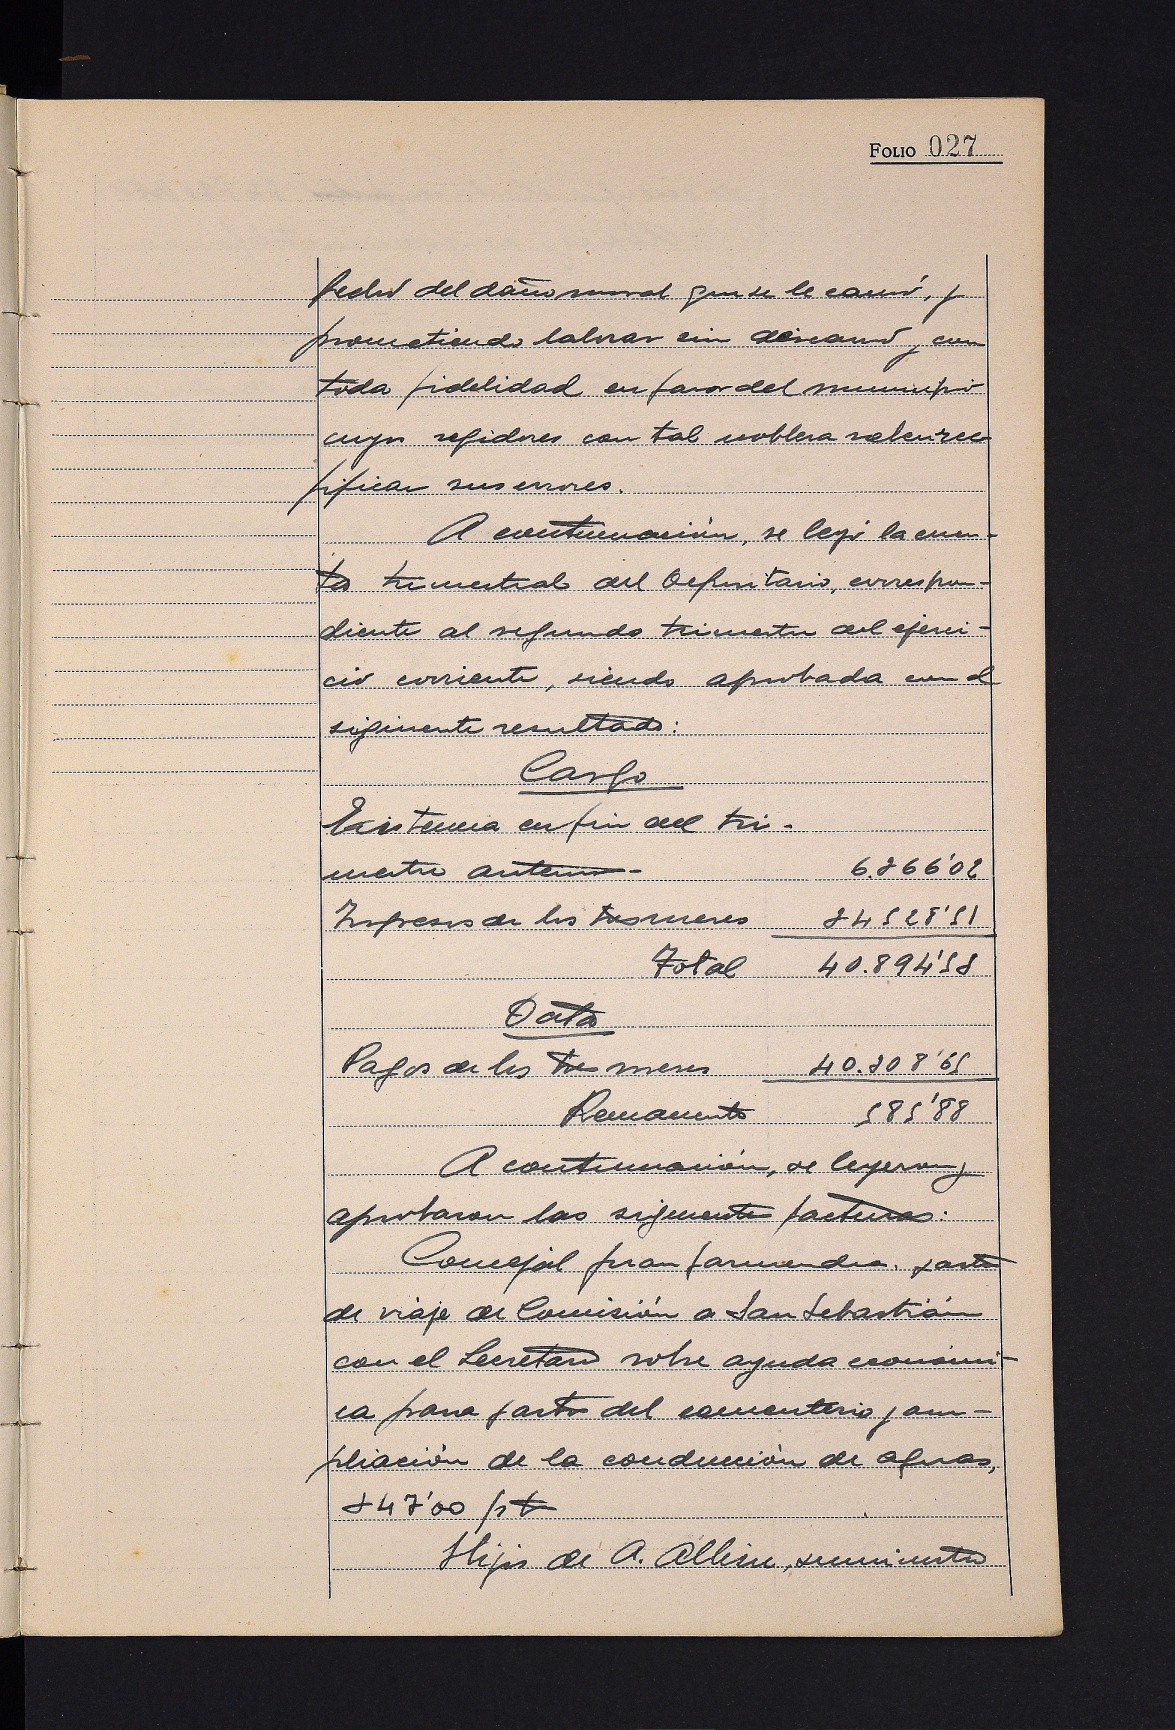 FOLIO 027
del daño moral que se le causó, y
prometiendo laborar sin descanso y con
toda fidelidad en favor del municipio
cuyos regidores con tal nobleza saben rec-
tificar sus errores.
A continuación, se leyó la cuen-
ta trimestral del Depositario, correspon-
diente al segundo trimestre del ejerci-
cio corriente, siendo aprobada con el
siguiente resultado:
Cargo
Existencia en fin del tri-
mestre anterior 6.366'02
Ingresos de los tres meses 34528'51
Total 40.894'53
Data
Pagos de los tres meses 40.308'65
Remanente 585'88
A continuación, se leyeron y
aprobaron las siguientes facturas:
Concejal Juan gasto
de viaje de Comisión a San Sebastián
con el Secretario sobre ayuda económi-
ca para gastos del cementerio y am-
pliación de la conducción de aguas,
347'00 pts
Hijos de A. suministro